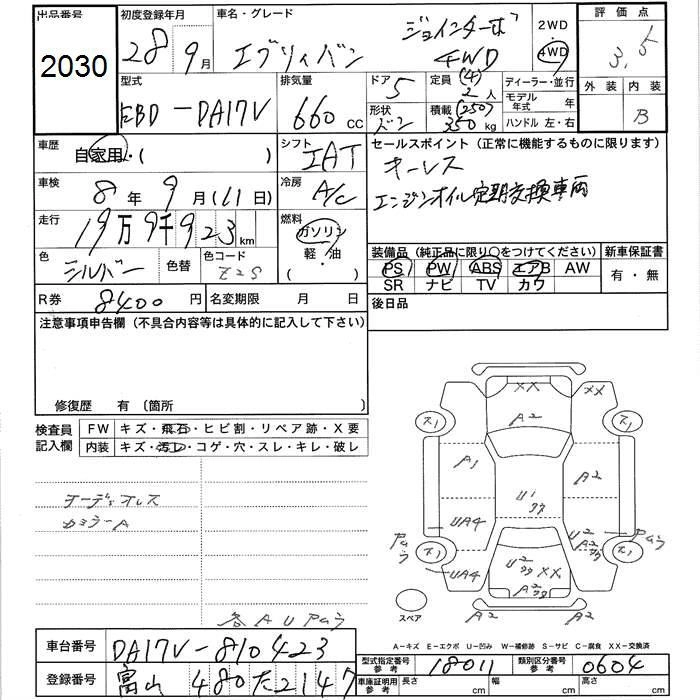 出品番号 初度登録年月 車名・グレード 2WD 評価点
2030 28年9月 エブリィバン ジョインターボ 4WD 4WD 3.5
型式 排気量 ドア 定員 (4) ディーラー・並行 外装 内装
EBD-DA17V 660cc 5 2人 モデル年式 年 B
形状 バン 積載 (250) 350kg ハンドル 左・右
車歴 自家用・( ) シフト IAT セールスポイント(正常に機能するものに限ります)
キーレス
車検 8年9月(11日) 冷房 A/C エンジンオイル定期交換車両
走行 19万9千923km 燃料 ガソリン
軽・油
( )
色 シルバー 色替 色コード Z2S
装備品(純正品に限り○をつけてください) 新車保証書
PS PW ABS エアB AW 有・無
SR ナビ TV カワ
R券 8400円 名変期限 月 日 後日品
注意事項申告欄(不具合内容等は具体的に記入して下さい)
修復歴 有(箇所 )
検査員記入欄 FW キズ・飛石・ヒビ割・リペア跡・X要
内装 キズ・汚レ・コゲ・穴・スレ・キレ・破レ
オーディオレス
カラーA
各AUアリ
XX XX
ス1 A2 ス1
A1 A2
U1
UA4 U2
ス1 ス1
UA4 U2 XX
A2
スペア A2 A2
A-キズ E-エクボ U-凹み W-補修跡 S-サビ C-腐食 XX-交換済
車台番号 DA17V-810423
登録番号 富山 480 た 2147
型式指定番号 参考 18011 類別区分番号 参考 0604
車庫証明用 参考 長さ cm 幅 cm 高さ cm